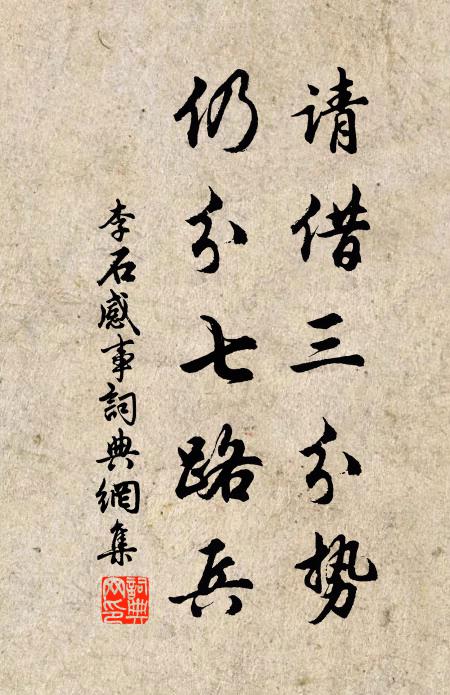 请借三分势
仍分七路兵
李石感事詞典網集
詞典網印